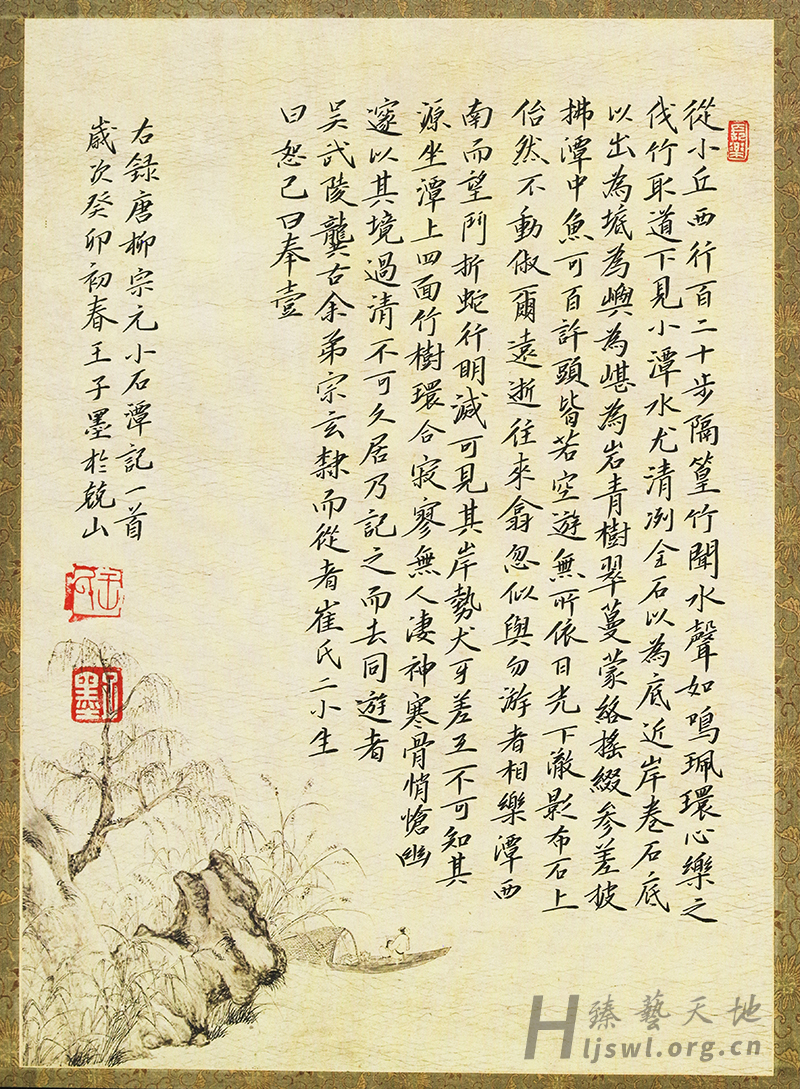 從小丘西行百二十步隔篁竹聞水聲如鳴珮環心樂之
伐竹取道下見小潭水尤清冽全石以為底近岸卷石底
以出為坻為嶼為嵁為岩青樹翠蔓蒙絡搖綴參差披
拂潭中魚可百許頭皆若空遊無所依日光下澈影布石上
佁然不動俶爾遠逝往來翕忽似與勿游者相樂潭西
南而望鬥折蛇行明滅可見其岸勢犬牙差互不可知其
源坐潭上四面竹樹環合寂寥無人凄神寒骨悄愴幽
邃以其境過清不可久居乃記之而去同遊者
吳武陵龔古余弟宗玄隸而從者崔氏二小生
曰恕己曰奉壹
右錄唐柳宗元小石潭記一首
歲次癸卯初春王子墨於兢山
子墨
臻藝天地
Hljswl.org.cn